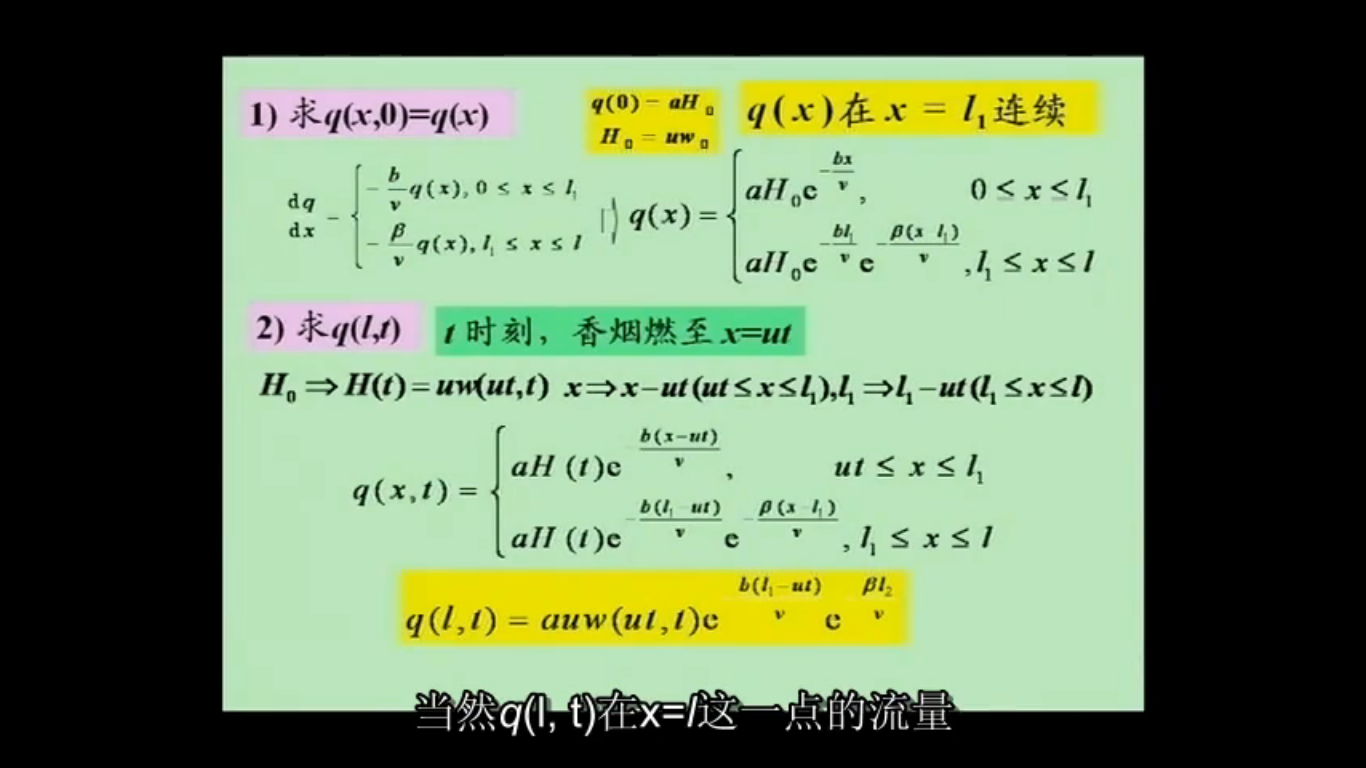 1) 求q(x,0)=q(x)
q(0) = aH₀
H₀ = uw₀
q(x)在 x = l₁连续
dq/dx = { -b/v q(x), 0 ≤ x ≤ l₁
-β/v q(x), l₁ ≤ x ≤ l
q(x) = { aH₀e^(-bx/v), 0 ≤ x ≤ l₁
aH₀e^(-bl₁/v) e^(-β(x-l₁)/v), l₁ ≤ x ≤ l
2) 求q(l,t)
t 时刻，香烟燃至 x=ut
H₀ ⇒ H(t) = uw(ut,t) x⇒x−ut(ut≤x≤l₁),l₁⇒l₁−ut(l₁≤x≤l)
q(x,t) = { aH(t)e^(-b(x-ut)/v), ut ≤ x ≤ l₁
aH(t)e^(-b(l₁-ut)/v) e^(-β(x-l₁)/v), l₁ ≤ x ≤ l
q(l,t) = auw(ut,t)e^(-b(l₁-ut)/v) e^(-βl₂/v)
当然q(l, t)在x=l这一点的流量